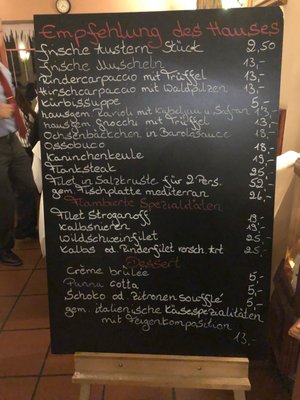 Empfehlung des Hauses
Frische Austern Stück 2,50
Frische Muscheln 13,-
Rindercarpaccio mit Trüffel 13,-
Hirschcarpaccio mit Waldpilzen 13,-
Kürbissuppe 5,-
hausgem. Ravioli mit Kabeljau u. Safran 13,-
hausgem. Gnocchi mit Trüffel 13,-
Ochsenbäckchen in Barolosauce 18,-
Ossobuco 18,-
Kaninchenkeule 19,-
Flanksteak 25,-
Filet in Salzkruste für 2 Pers. 52,-
gem. Fischplatte mediterran 26,-
Flambierte Spezialitäten
Filet Stroganoff 19,-
Kalbsnieren 19,-
Wildschweinfilet 25,-
Kalbs od. Rinderfilet versch. Art 25,-
Dessert
Crème brûlée 5,-
Panna cotta 5,-
Schoko od. Zitronen soufflé 5,-
gem. italienische Käsespezialitäten
mit Feigenkomposition 13,-